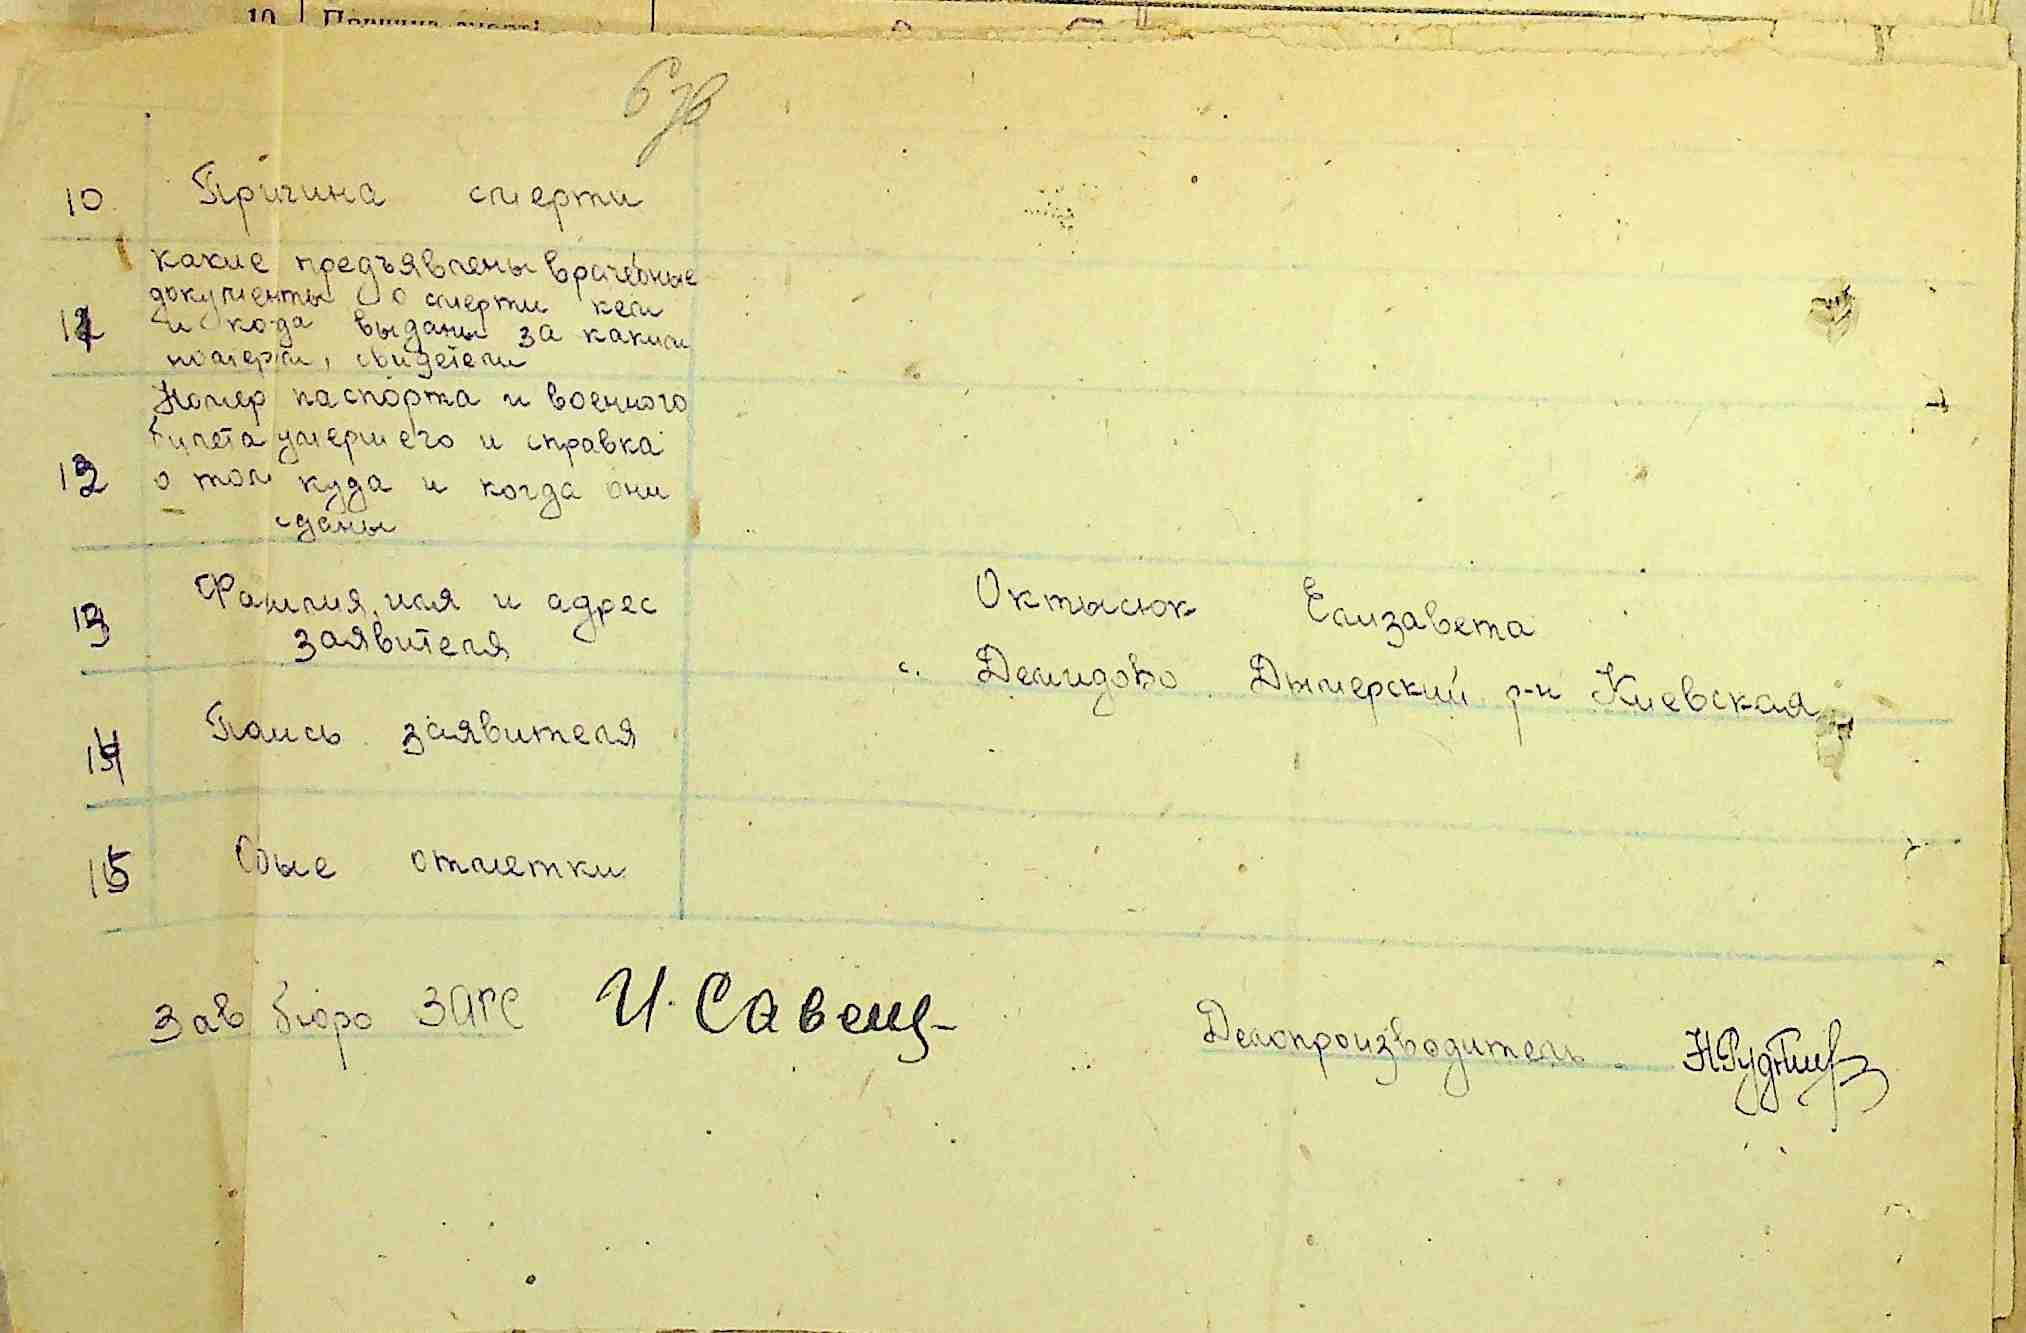 10 Причина смерти
6 зв
10 Причина смерти
какие предъявлены врачебные
документы о смерти кем
11 и кода выданы за каким
номерм, свидетели
Номер паспорта и военного
билета умершего и справка
12 о том куда и когда они
сданы
13 Фамлия, имя и адрес Октысюк Елизавета
заявителя
с. Демидово Дымерский р-н Киевская
14 Папись заявителя
15 Обые отметки
Зав бюро ЗАГС И. Савещ-
Делопроизводитель